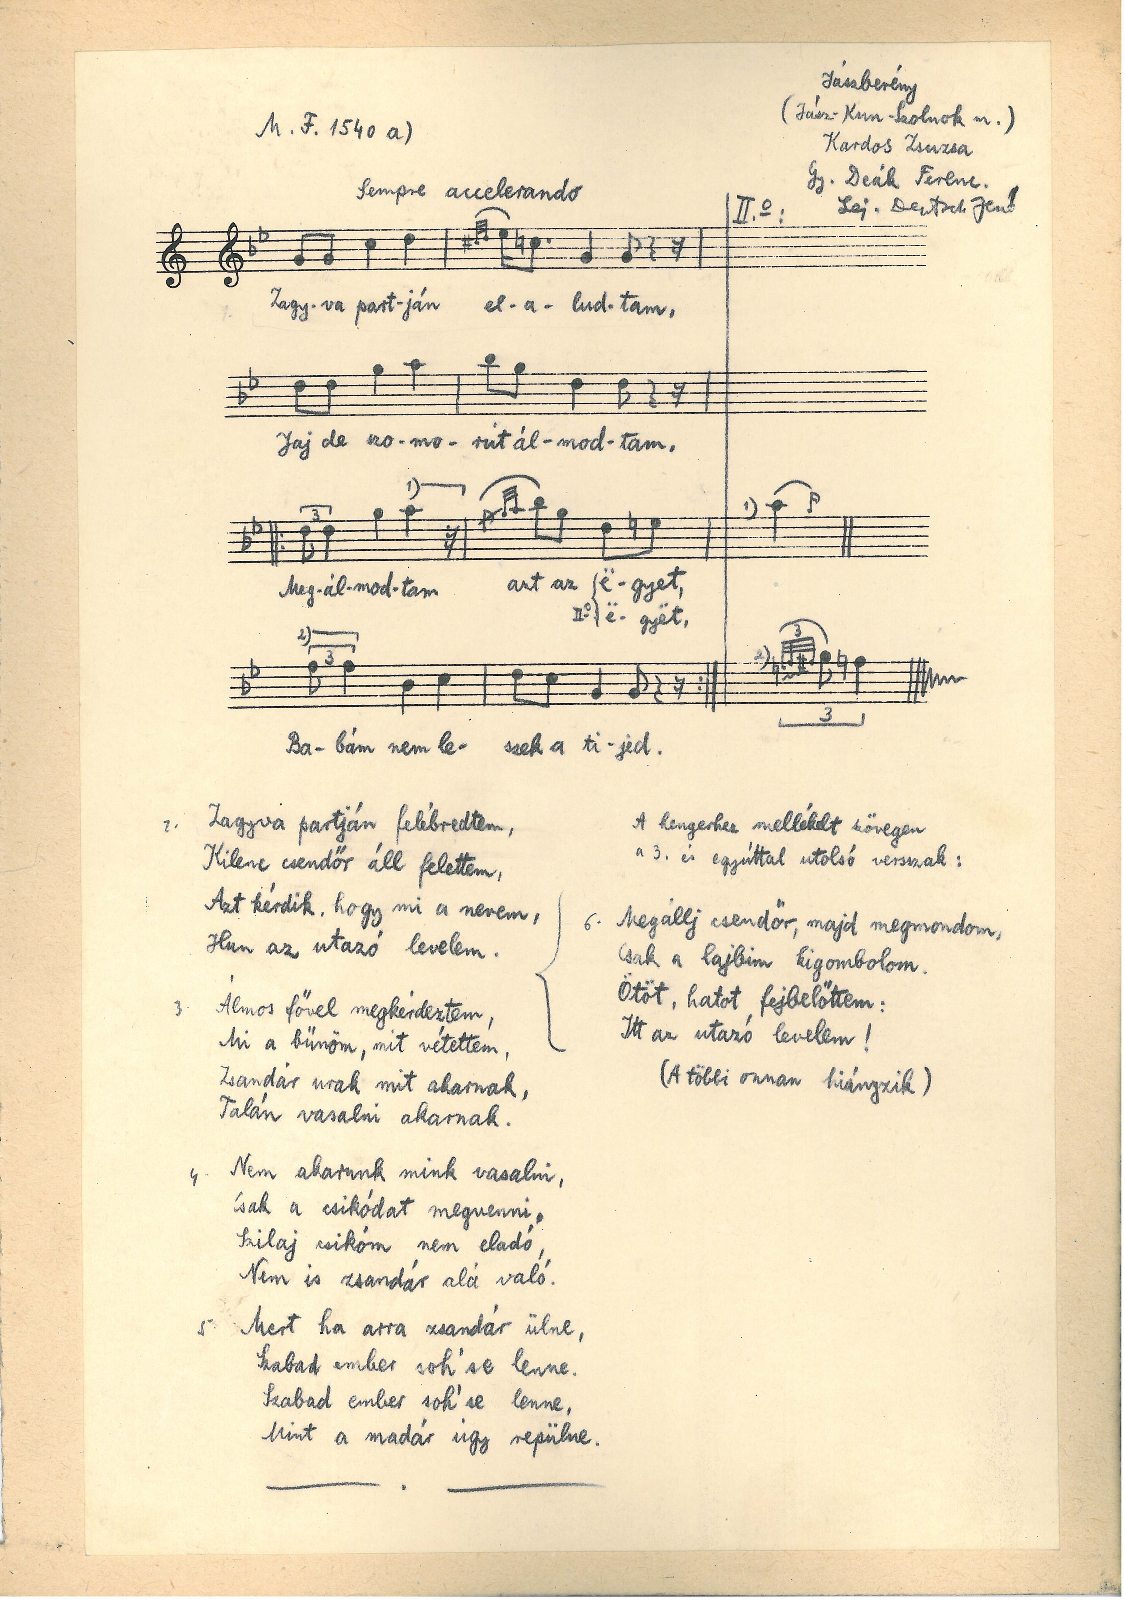 Jászberény
(Jász-Kun-Szolnok m.)
Kardos Zsuzsa
Gy. Deák Ferenc.
Lej. Deutsch Jenő
M. F. 1540 a)
Sempre accelerando
II.º:
Zagy-va part-ján el-a-lud-tam,
Jaj de szo-mo-rút ál-mod-tam.
3
1)
1)
Meg-ál-mod-tam azt az ë-gyet,
IIº ë-gyët,
2)
3
2)
3
3
Ba-bám nem le-szek a ti-jed.
2. Zagyva partján felébredtem,
Kilenc csendőr áll felettem,
Azt kérdik, hogy mi a nevem,
Hun az utazó levelem.
3. Álmos fővel megkérdeztem,
Mi a bűnöm, mit vétettem,
Zsandár urak mit akarnak,
Talán vasalni akarnak.
4. Nem akarunk mink vasalni,
Csak a csikódat megvenni,
Szilaj csikóm nem eladó,
Nem is zsandár alá való.
5. Mert ha arra zsandár ülne,
Szabad ember soh'se lenne.
Szabad ember soh'se lenne,
Mint a madár úgy repülne.
A hengerhez mellékelt szövegen
a 3. és egyúttal utolsó versszak:
6. Megállj csendőr, majd megmondom,
Csak a lajbim kigombolom.
Ötöt, hatot fejbelőttem:
Itt az utazó levelem!
(A többi onnan hiányzik)